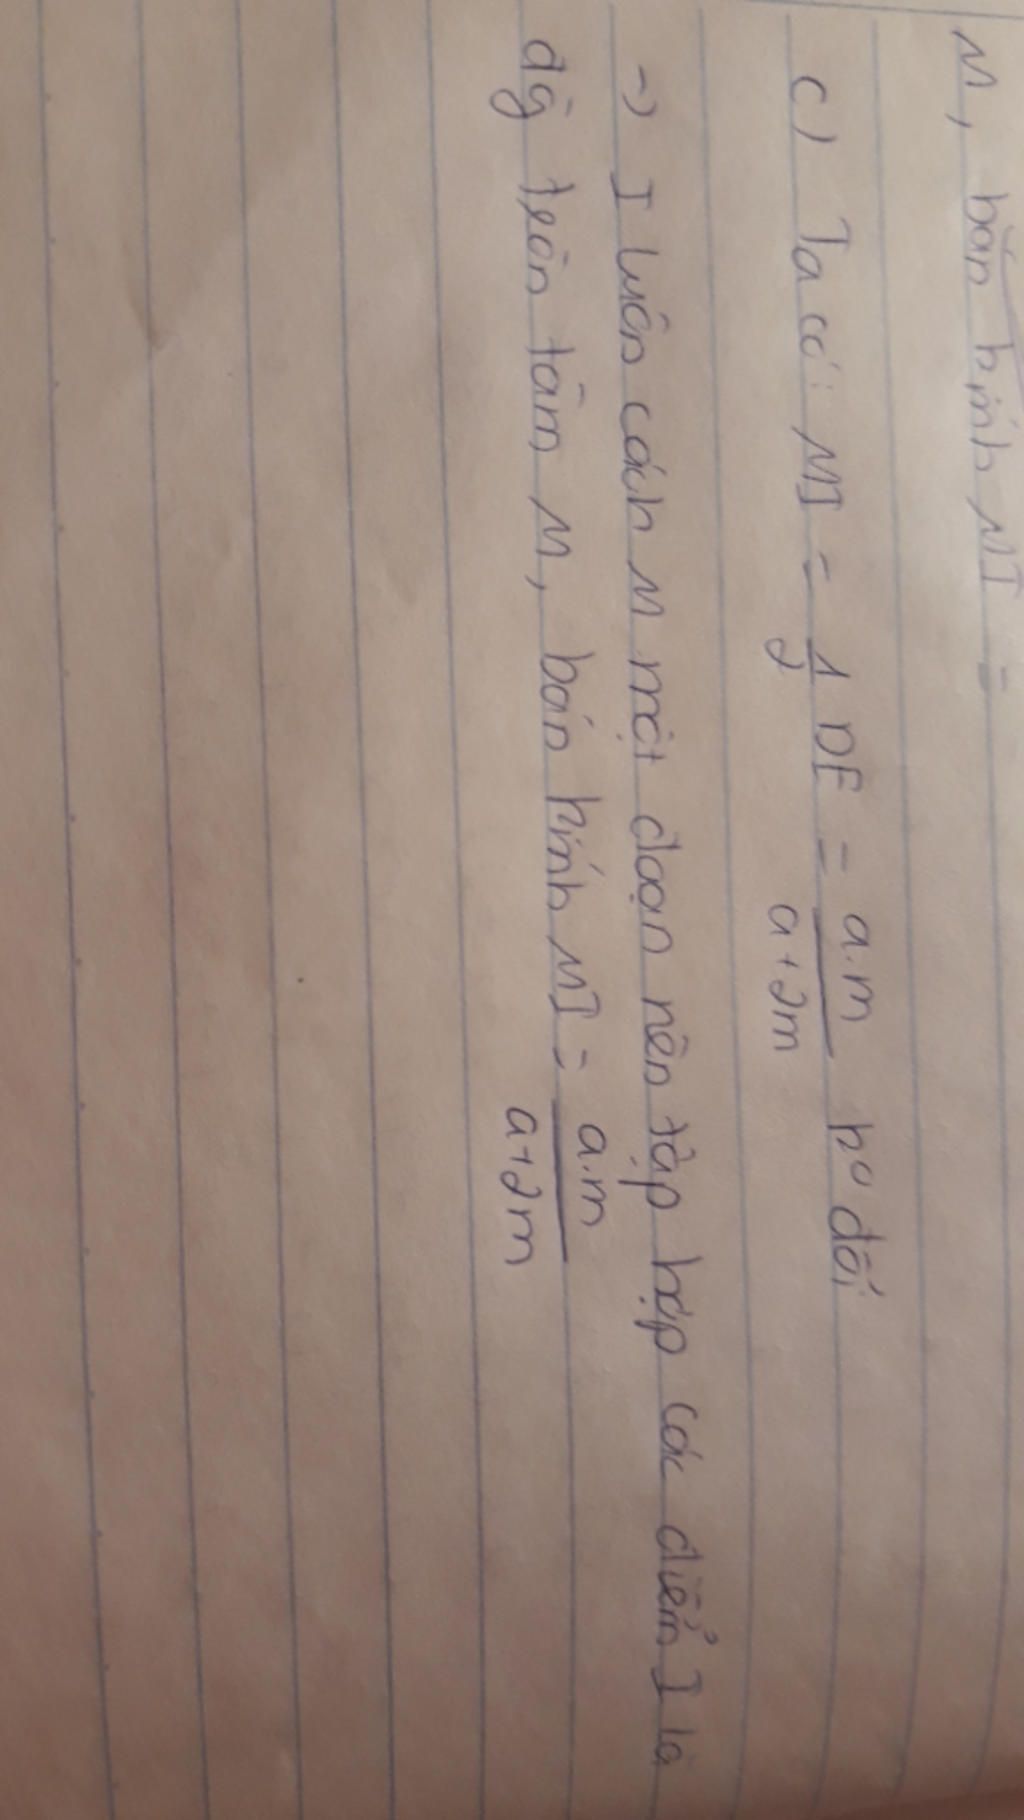 M, bán kính MI =
c) Ta có: MI = 1/2 DE = a.m/a+2m ko đổi
-> I luôn cách M một đoạn nên tập hợp các điểm I là
đg tròn tâm M, bán kính MI = a.m/a+2m